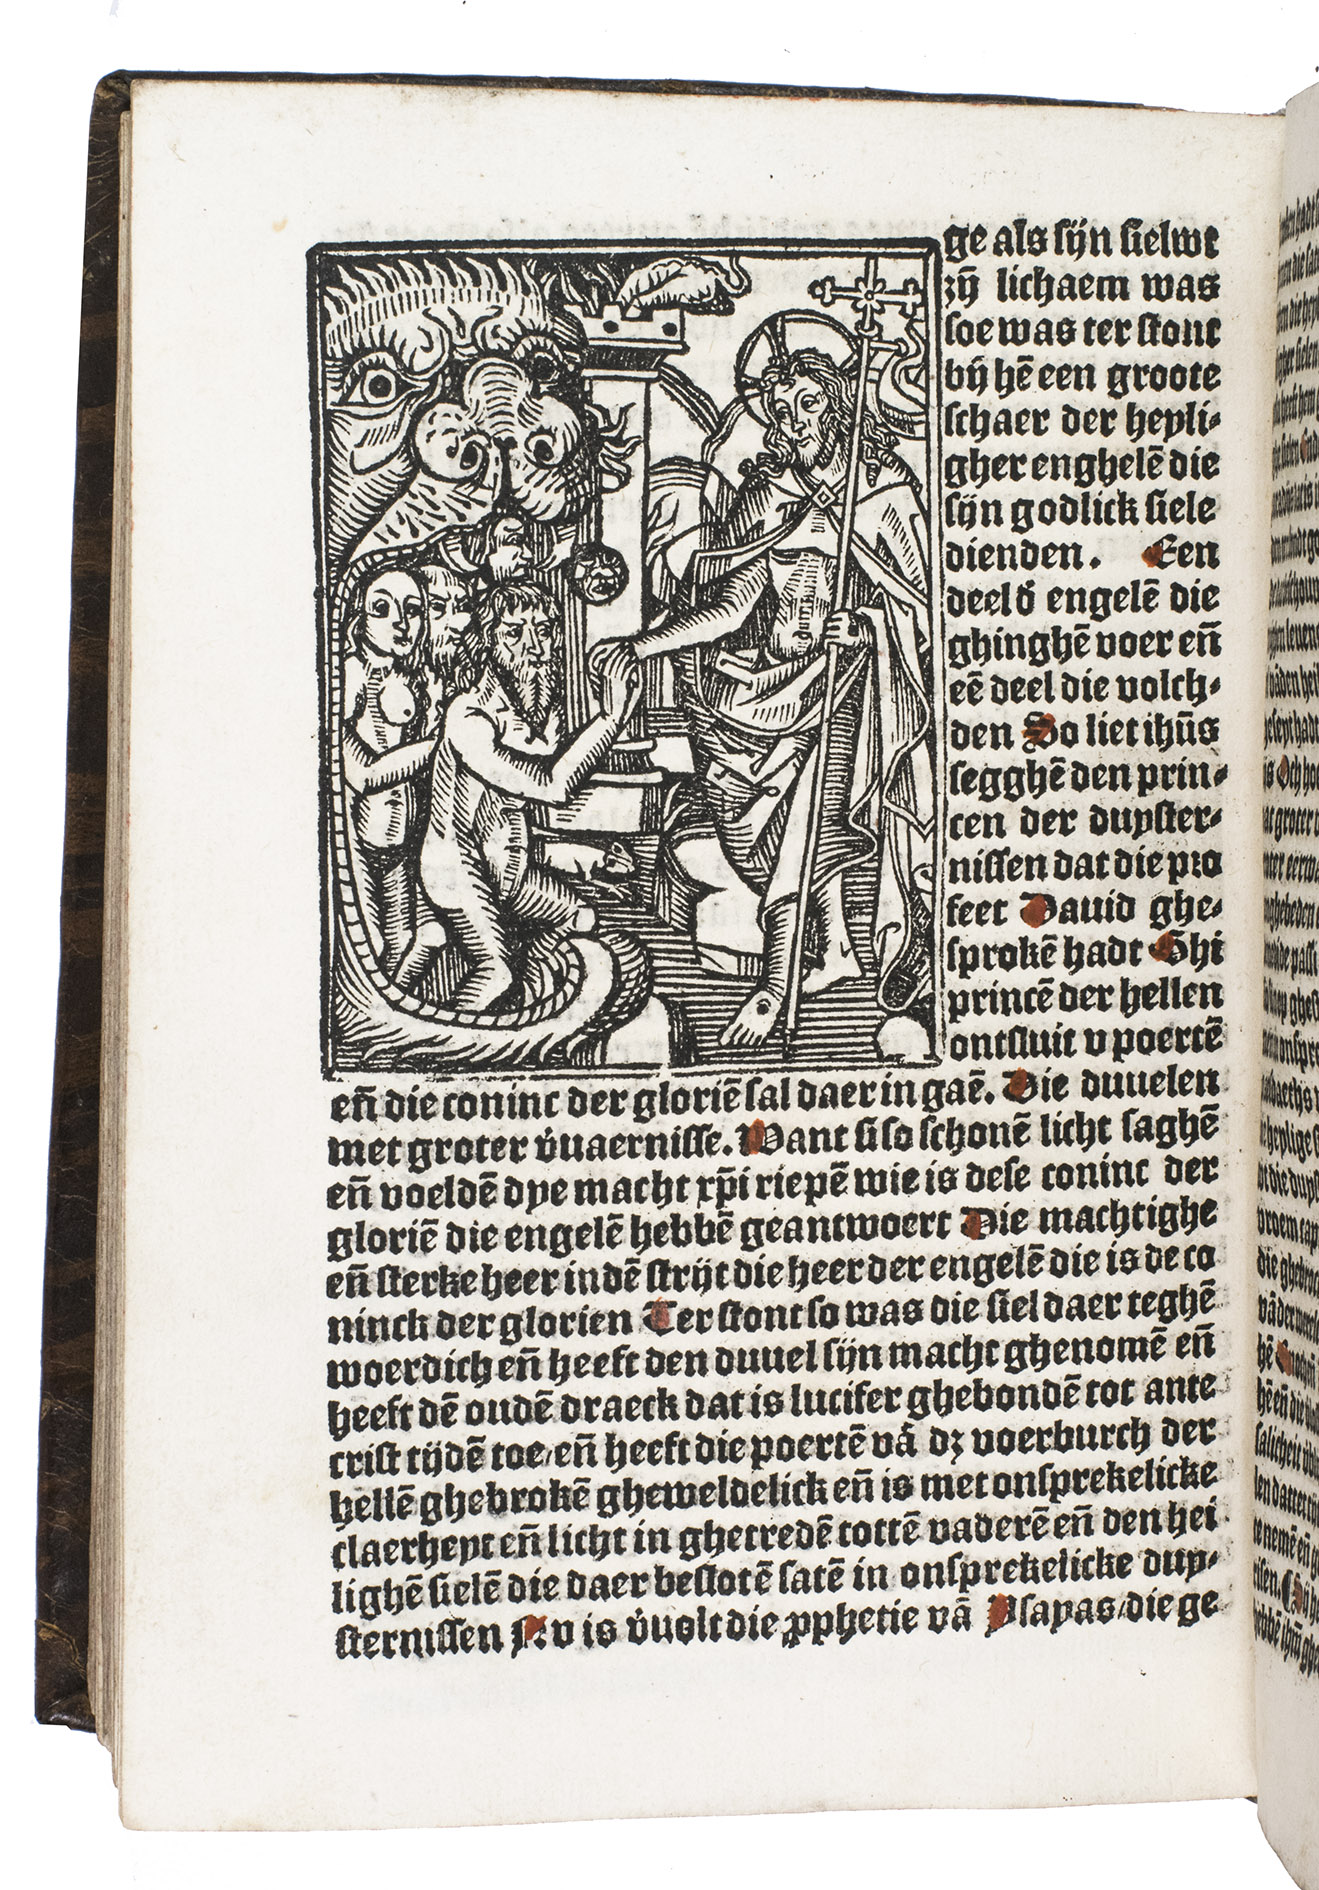 ge als sijn sielwt
zȳ lichaem was
soe was ter stont
bij hē een groote
schaer der heyli-
gher enghelē die
sijn godlick siele
dienden. Een
deel d̕ engelē die
ghinghē voer eñ
eē deel die volch-
den So liet ihūs
segghē den prin-
cen der duyster-
nissen dat die pro
feet Dauid ghe-
sprokē hadt Ghi
princē der hellen
ontsluit v poertē
eñ die coninc der gloriē sal daer in gaē. Die duuelen
met groter v̕uaernisse. Want si so schonē licht saghē
eñ voeldē dye macht xp̄i riepē wie is dese coninc der
gloriē die engelē hebbē geantwoert Die machtighe
eñ sterke heer in dē strijt die heer der engelē die is de co
ninck der glorien Ter stont so was die siel daer teghē
woerdich eñ heeft den duuel sijn macht ghenomē eñ
heeft dē oudē draeck dat is lucifer ghebondē tot ante
crist tijdē toe/eñ heeft die poertē vā dz voerburch der
hellē ghebrokē gheweldelick eñ is met onsprekelicke
claerheyt eñ licht in ghetredē tottē vaderē eñ den hei
lighē sielē die daer beslotē satē in onsprekelicke duy-
sternissen Nv is v̕uolt die ꝓphetie vā Ysayas/die ge